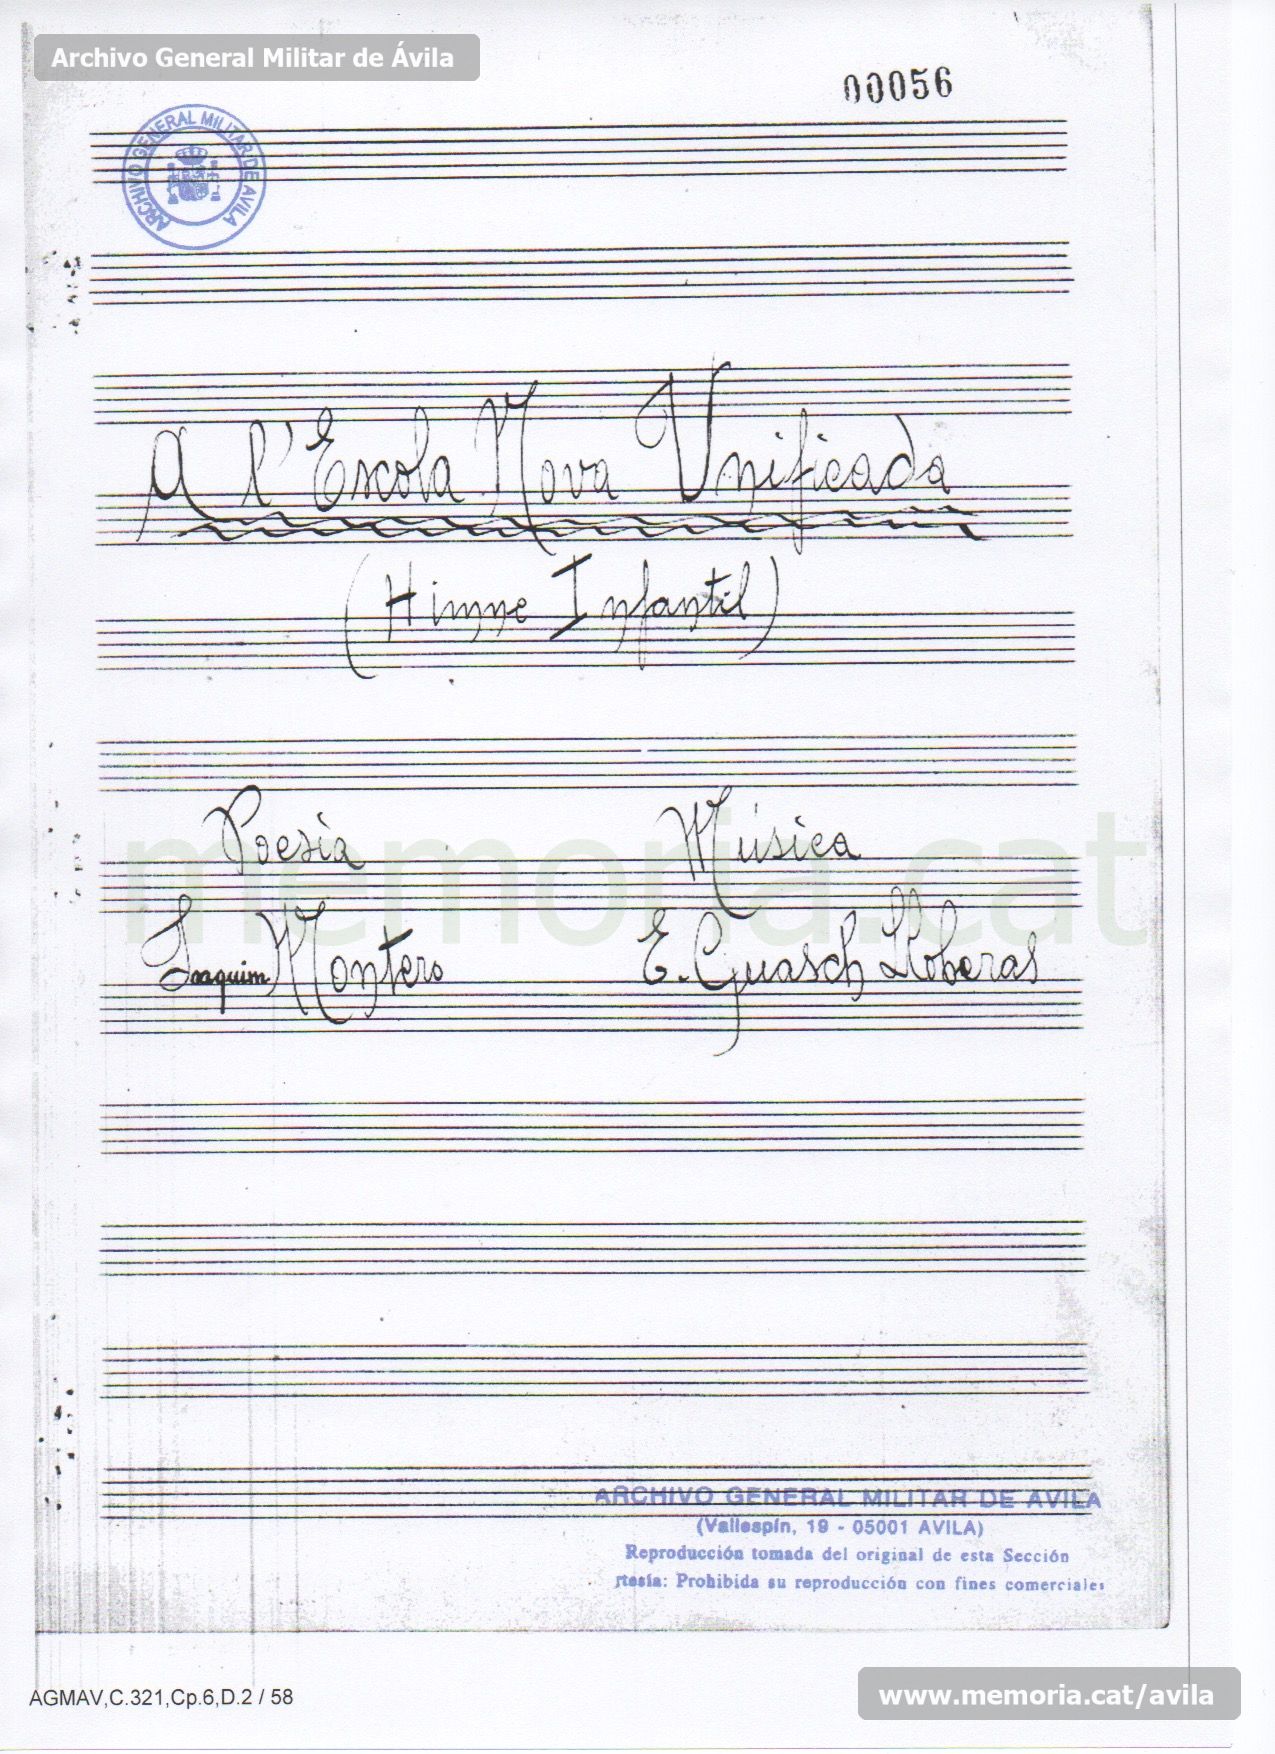 Archivo General Militar de Ávila
00056
ARCHIVO GENERAL MILITAR DE AVILA
A l'Escola Nova Unificada
(Himne Infantil)
Poesia Música
Joaquim Montero E. Guasch Lloberas
memoria.cat
ARCHIVO GENERAL MILITAR DE AVILA
(Vallespín, 19 - 05001 AVILA)
Reproducción tomada del original de esta Sección
rtesía: Prohibida su reproducción con fines comerciales
AGMAV,C.321,Cp.6,D.2 / 58
www.memoria.cat/avila